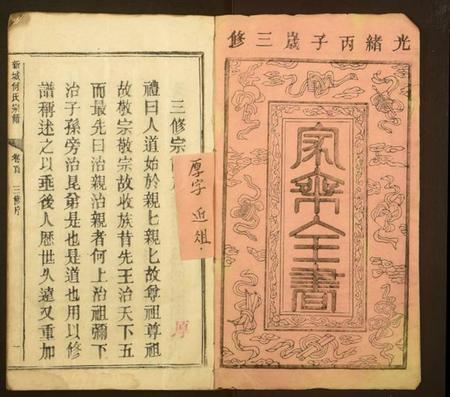 光緒丙子歲三修
家乘全書
三修宗
厚字 近祖
禮曰人道始於親親親親故尊祖尊祖
故敬宗敬宗故收族昔先王治天下五
而最先曰治親治親者何上治祖禰下
治子孫旁治昆弟是也是道也用以修
譜稱述之以垂後人歷世久遠又重加
厚
新城何氏宗譜
卷首
三修序
一